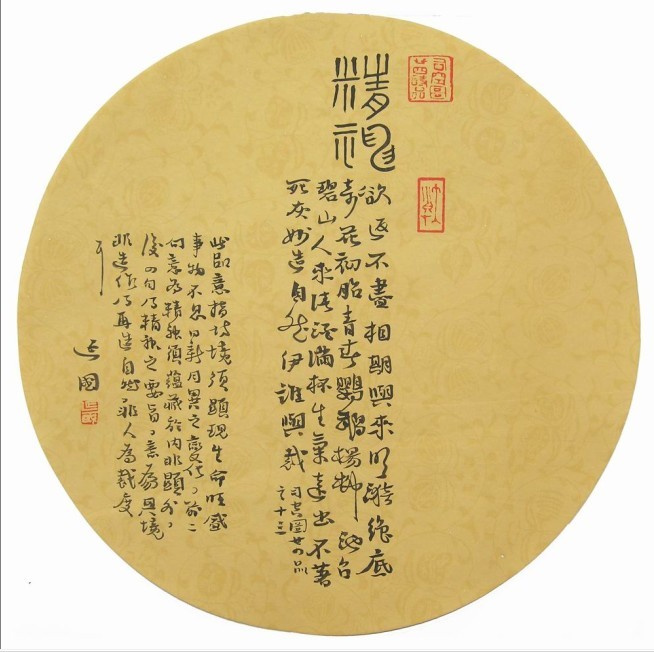 司空圖廿四詩品
精神
欲返不盡相期與來明漪絕底
奇花初胎青春鸚鵡楊柳池台
碧山人來清酒滿杯生氣遠出不著
死灰妙造自然伊誰與裁
司空圖廿四品
之十三
此品意指诗境须顯現生命旺盛
事物不息日新月異之變化，前二
句意为精神須蘊藏於内非顯外，
後四句乃精神之要旨，意為與境
非造作乃再造自然非人為裁度
耳
國